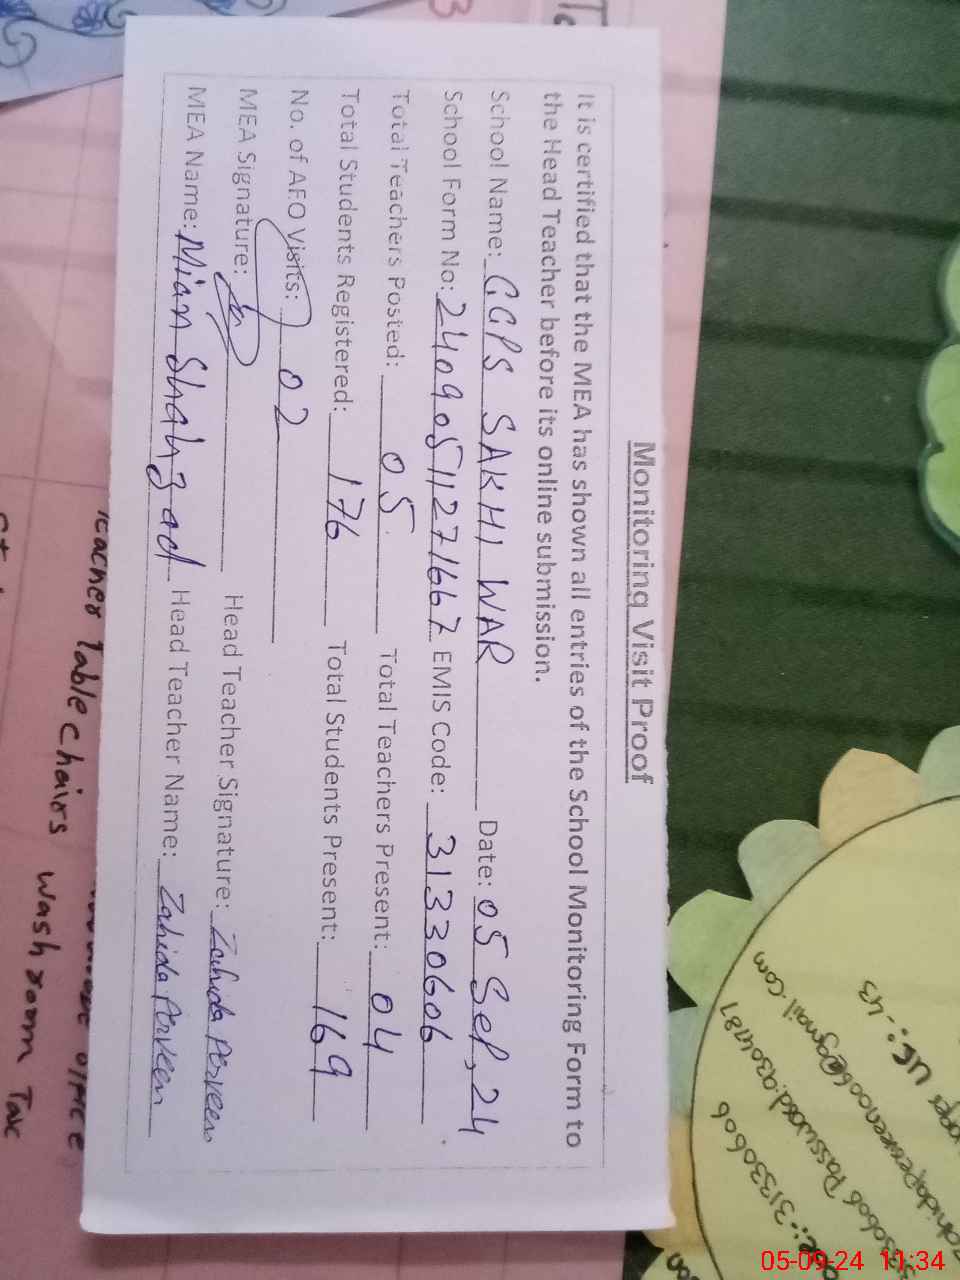 Monitoring Visit Proof
It is certified that the MEA has shown all entries of the School Monitoring Form to
the Head Teacher before its online submission.
School Name: GGPS SAKHI WAR Date: 05 Sep, 24
School Form No: 24090511271667 EMIS Code: 31330606
Total Teachers Posted: 05 Total Teachers Present: 04
Total Students Registered: 176 Total Students Present: 169
No. of AEO Visits: 02
MEA Signature: Head Teacher Signature: Zahida Perveen
MEA Name: Mian Shahzad Head Teacher Name: Zahida Perveen
Teacher Table Chairs
wash room
31330606
UC:-43
05-09-24 11:34